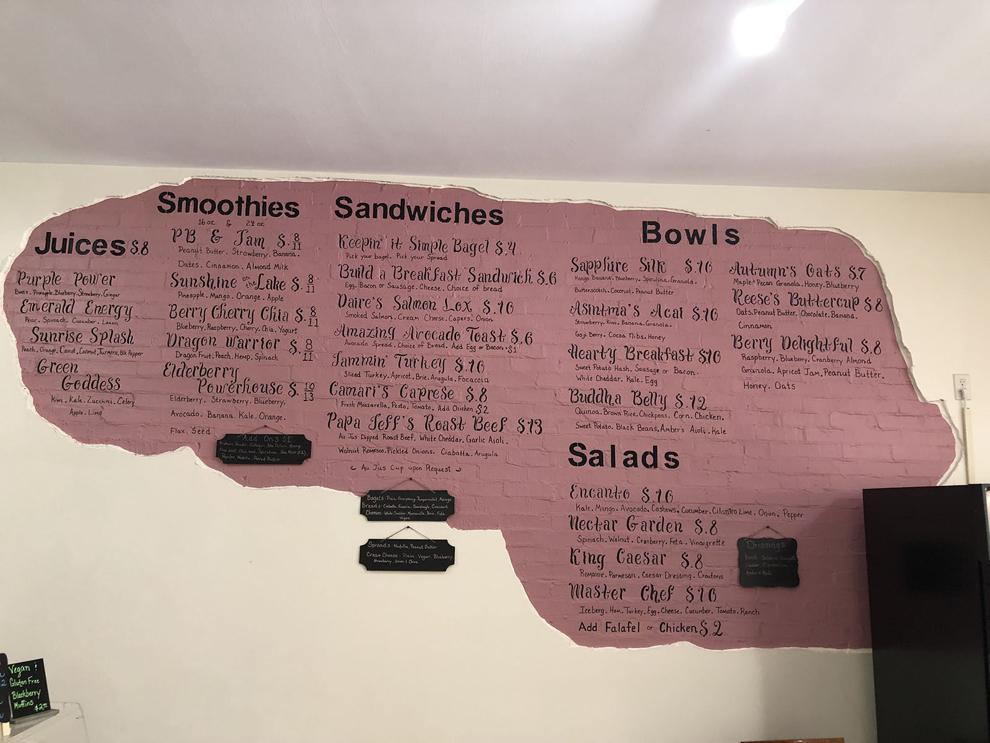 Juices $8
Purple Power
Beets, Pineapple, Blueberry, Strawberry, Ginger
Emerald Energy
Pear, Spinach, Cucumber, Lemon
Sunrise Splash
Peach, Orange, Carrot, Coconut, Turmeric, Blk Pepper
Green
Goddess
Kiwi, Kale, Zucchini, Celery
Apple, Lime
Smoothies
16 oz & 24 oz
PB & Jam $ 8 11
Peanut Butter, Strawberry, Banana,
Dates, Cinnamon, Almond Milk
Sunshine on the Lake $ 8 11
Pineapple, Mango, Orange, Apple
Berry Cherry Chia $ 8 11
Blueberry, Raspberry, Cherry, Chia, Yogurt
Dragon Warrior $ 8 11
Dragon Fruit, Peach, Hemp, Spinach
Elderberry
Powerhouse $ 10 13
Elderberry, Strawberry, Blueberry,
Avocado, Banana, Kale, Orange,
Flax Seed
Add Ons $1
Sandwiches
Keepin' it Simple Bagel $4
Pick your bagel, Pick your Spread
Build a Breakfast Sandwich $6
Egg, Bacon or Sausage, Cheese, Choice of bread
Daire's Salmon Lox $10
Smoked Salmon, Cream Cheese, Capers, Onion
Amazing Avocado Toast $6
Avocado Spread, Choice of Bread, Add Egg or Bacon $1
Jammin' Turkey $10
Sliced Turkey, Apricot, Brie, Arugula, Focaccia
Camari's Caprese $8
Fresh Mozzarella, Pesto, Tomato, Add Chicken $2
Papa Jeff's Roast Beef $13
Au Jus Dipped Roast Beef, White Cheddar, Garlic Aioli,
Walnut Romesco, Pickled Onions, Ciabatta, Arugula
Au Jus Cup upon Request
Bagels
Breads
Cheeses
Spreads: Nutella, Peanut Butter
Cream Cheese: Plain, Vegan, Blueberry
Strawberry
Bowls
Sapphire Silk $10
Mango, Banana, Blueberry, Spirulina, Granola,
Butterscotch, Coconut, Peanut Butter
Asintma's Acai $10
Strawberry, Kiwi, Banana, Granola,
Goji Berry, Cocoa Nibs, Honey
Hearty Breakfast $10
Sweet Potato Hash, Sausage or Bacon,
White Cheddar, Kale, Egg
Buddha Belly $12
Quinoa, Brown Rice, Chickpeas, Corn, Chicken,
Sweet Potato, Black Beans, Amber's Aioli, Kale
Autumn's Oats $7
Maple Pecan Granola, Honey, Blueberry
Reese's Buttercup $8
Oats, Peanut Butter, Chocolate, Banana,
Cinnamon
Berry Delightful $8
Raspberry, Blueberry, Cranberry Almond
Granola, Apricot Jam, Peanut Butter,
Honey, Oats
Salads
Encanto $10
Kale, Mango, Avocado, Cashews, Cucumber, Cilantro Lime, Onion, Pepper
Nectar Garden $8
Spinach, Walnut, Cranberry, Feta, Vinaigrette
King Caesar $8
Romaine, Parmesan, Caesar Dressing, Croutons
Master Chef $10
Iceberg, Ham, Turkey, Egg, Cheese, Cucumber, Tomato, Ranch
Add Falafel or Chicken $2
Dressings
Vegan!
Gluten Free
Blackberry
Muffins